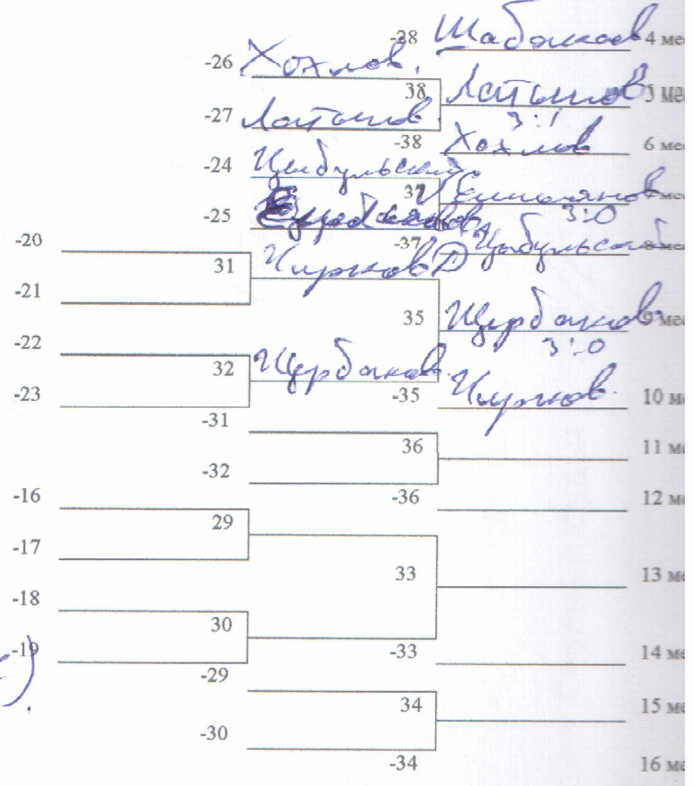 -28 Шабанов 4 ме
-26 Хохлов
38 Латыпов 5 ме
3:1
-27 Латыпов
-38 Хохлов 6 ме
-24 Цыбульский
37
3:0
-25
-37 Цыбульский 8 ме
-20
31 Чирков
-21
35 Щербаков 9 ме
3:0
-22
32 Щербаков
-35 Чирков 10 ме
-23
-31
36 11 ме
-32
-36 12 ме
-16
29
-17
33 13 ме
-18
30
-33 14 ме
-19
-29
34 15 ме
-30
-34 16 ме